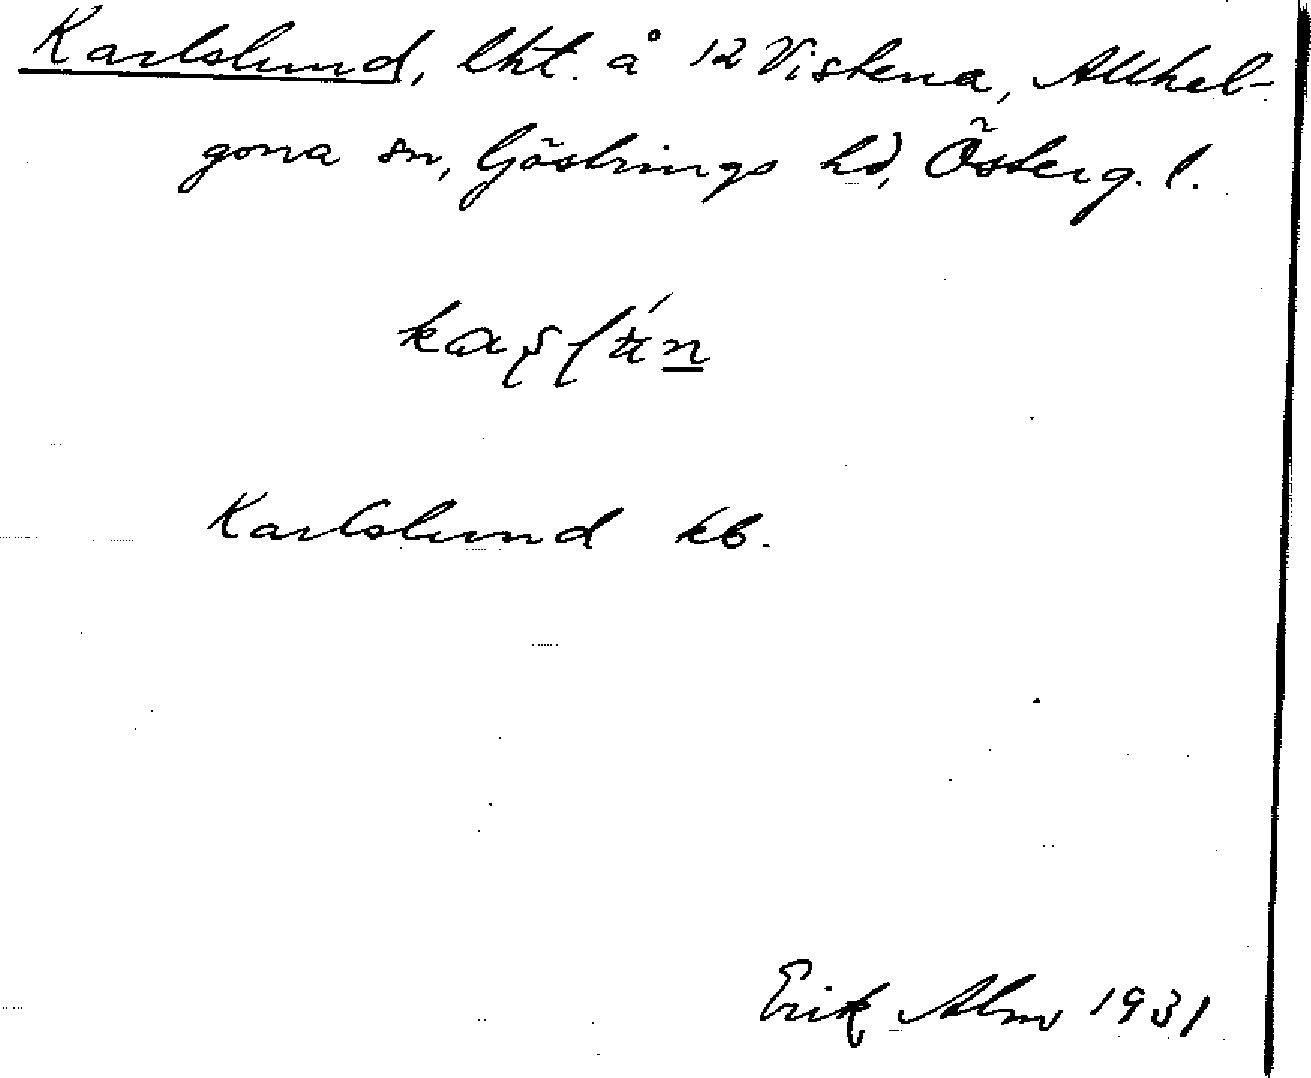 Karlslund, lht. å 12 Vistena, Allhel-
gona sn, Göstrings hd, Österg. l.
Karlslund kb.
Erik Alm 1931